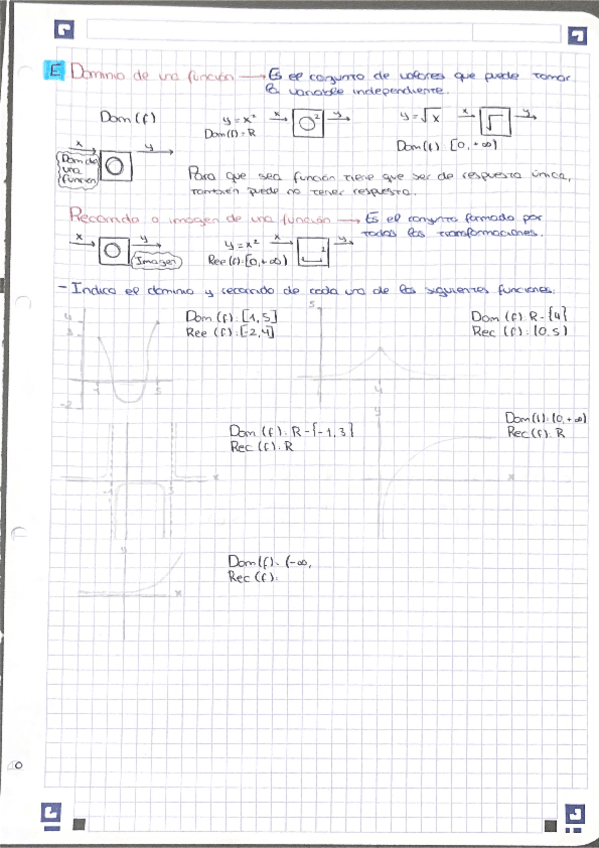 E Dominio de una función → Es el conjunto de valores que puede tomar
la variable independiente.
Dom (f) y = x² x ² y y = √x x √ y
Dom (f) = R Dom (f): [0, +∞)
x y
Dom de
una
función
Para que sea función tiene que ser de respuesta única,
también puede no tener respuesta.
Recorrido o imagen de una función → Es el conjunto formado por
todas las transformaciones.
x y y = x² x ² y
Imagen Ree (f): [0, +∞)
- Indica el dominio y recorrido de cada una de las siguientes funciones.
4 Dom (f): [1, 5] 5 Dom (f): R - {4}
3 Ree (f): [-2, 4] Rec (f): (0, 5)
1 5 4
-2
y
Dom (f): R - {-1, 3} Dom (f): (0, +∞)
Rec (f): R Rec (f): R
x x
y
Dom (f): (-∞,
Rec (f):
x